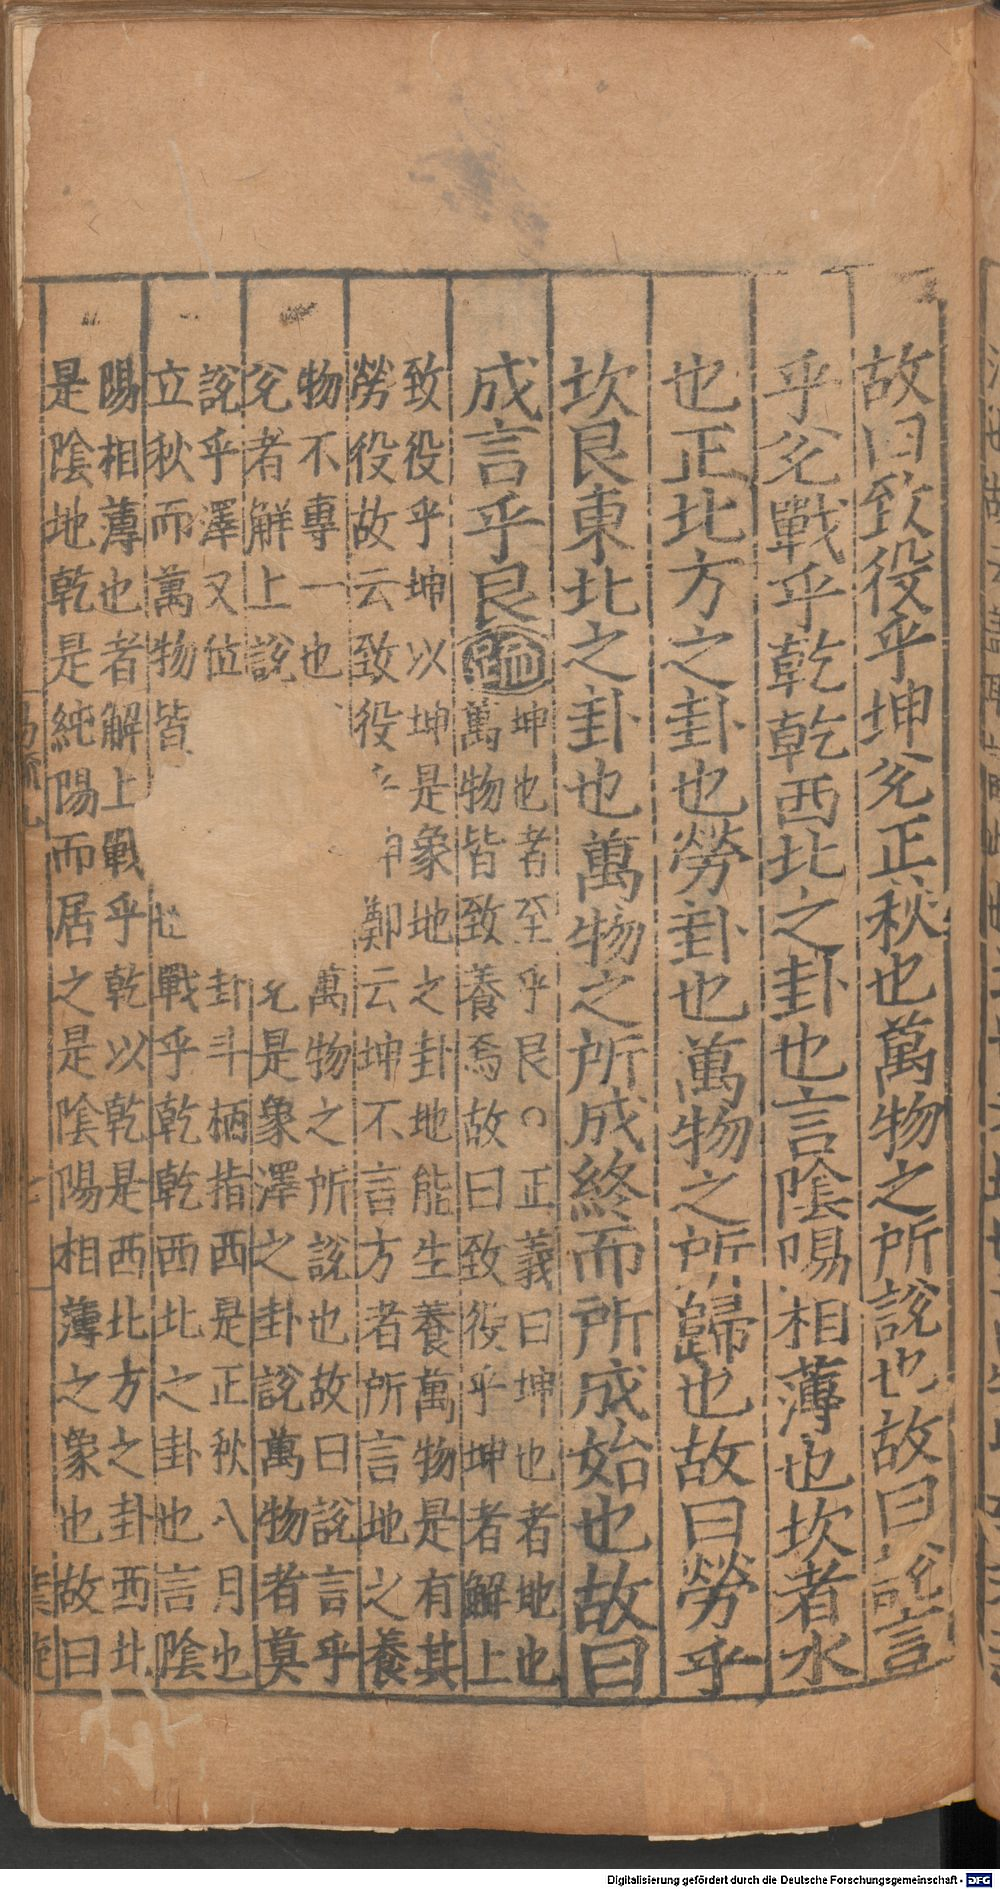 故曰致役乎坤兊正秋也萬物之所說也故曰說言
乎兊戰乎乾乾西北之卦也言陰陽相薄也坎者水
也正北方之卦也勞卦也萬物之所歸也故曰勞乎
坎艮東北之卦也萬物之所成終而所成始也故曰
成言乎艮疏
坤也者至乎艮○正義曰坤也者地也
萬物皆致養焉故曰致役乎坤者解上
致役乎坤以坤是象地之卦地能生養萬物是有其
勞役故云致役鄭云坤不言方者所言地之養
物不專一也萬物之所說也故曰說言乎
兊者解上說兊是象澤之卦說萬物者莫
說乎澤又位卦斗柄指西是正秋八月也
立秋而萬物皆戰乎乾乾西北之卦也言陰
陽相薄也者解上戰乎乾以乾是西北方之卦西北
是陰地乾是純陽而居之是陰陽相薄之象也故曰
Digitalisierung gefördert durch die Deutsche Forschungsgemeinschaft - DFG